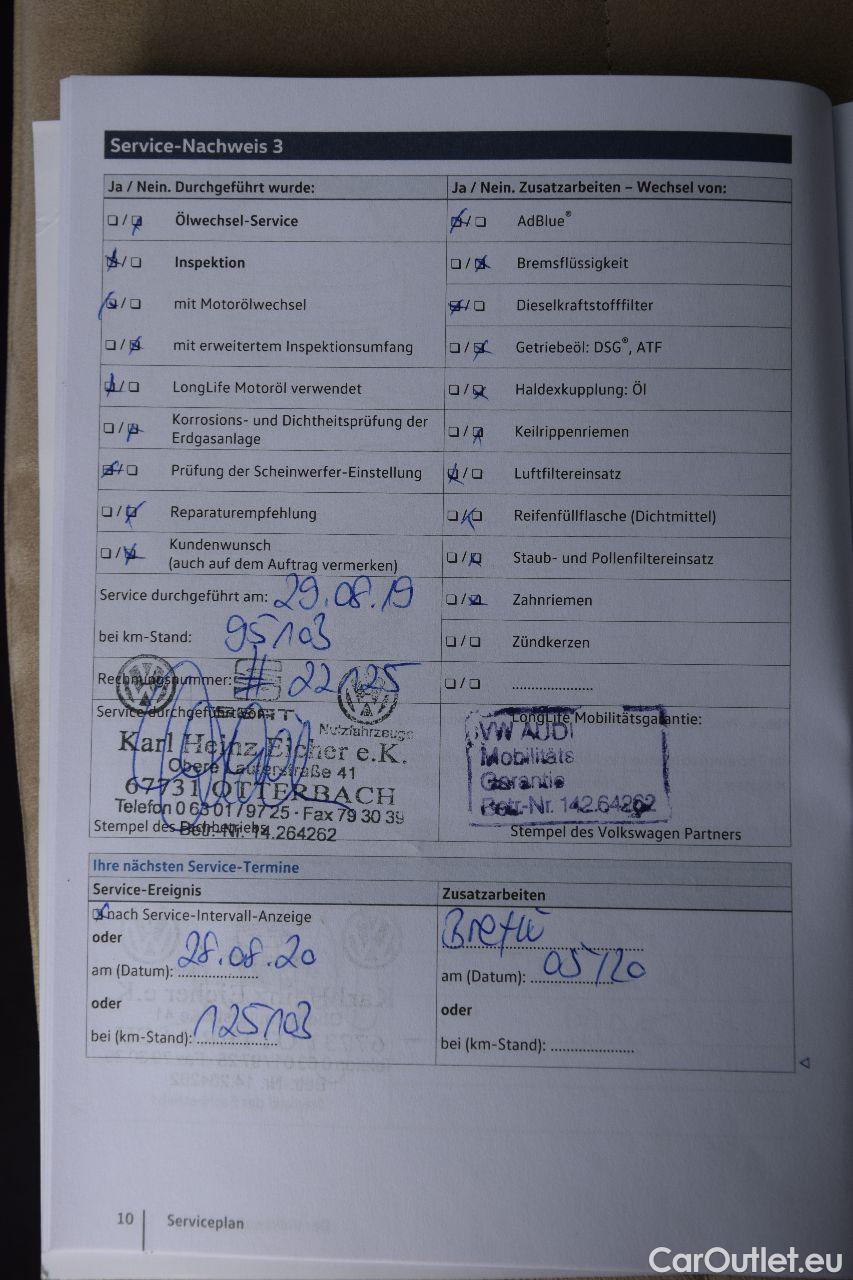 Service-Nachweis 3
Ja / Nein. Durchgeführt wurde:
Ölwechsel-Service
Inspektion
mit Motorölwechsel
mit erweitertem Inspektionsumfang
LongLife Motoröl verwendet
Korrosions- und Dichtheitsprüfung der
Erdgasanlage
Prüfung der Scheinwerfer-Einstellung
Reparaturempfehlung
Kundenwunsch
(auch auf dem Auftrag vermerken)
Service durchgeführt am: 29.08.19
bei km-Stand: 95103
Rechnungsnummer: # 22125
Service durchgeführt von:
SEAT
Nutzfahrzeuge
Karl Heinz Eicher e.K.
Obere Lauterstraße 41
67731 OTTERBACH
Telefon 0 63 01 / 97 25 · Fax 79 30 39
Betr.-Nr. 14.264262
Stempel des Fachbetriebs
Ja / Nein. Zusatzarbeiten – Wechsel von:
AdBlue®
Bremsflüssigkeit
Dieselkraftstofffilter
Getriebeöl: DSG®, ATF
Haldexkupplung: Öl
Keilrippenriemen
Luftfiltereinsatz
Reifenfüllflasche (Dichtmittel)
Staub- und Pollenfiltereinsatz
Zahnriemen
Zündkerzen
.....................
LongLife Mobilitätsgarantie:
VW AUDI
Mobilitäts
Garantie
Betr.-Nr. 142.64262
Stempel des Volkswagen Partners
Ihre nächsten Service-Termine
Service-Ereignis
nach Service-Intervall-Anzeige
oder
am (Datum): 28.08.20
oder
bei (km-Stand): 125103
Zusatzarbeiten
am (Datum): 05/20
oder
bei (km-Stand): .....................
10 Serviceplan
CarOutlet.eu